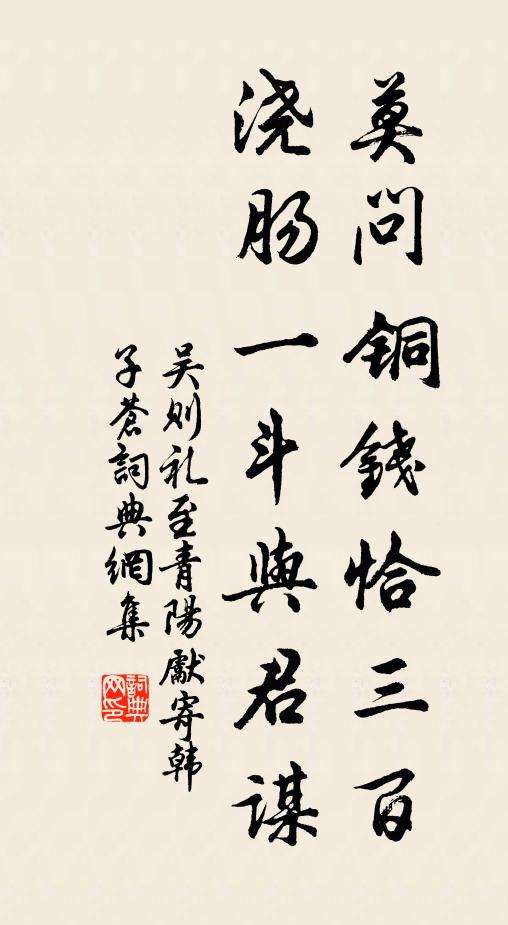 莫问铜錢恰三百
浇肠一斗與君谋
吴则礼至青陽獻寄韩
子蒼詞典網集
詞典网印